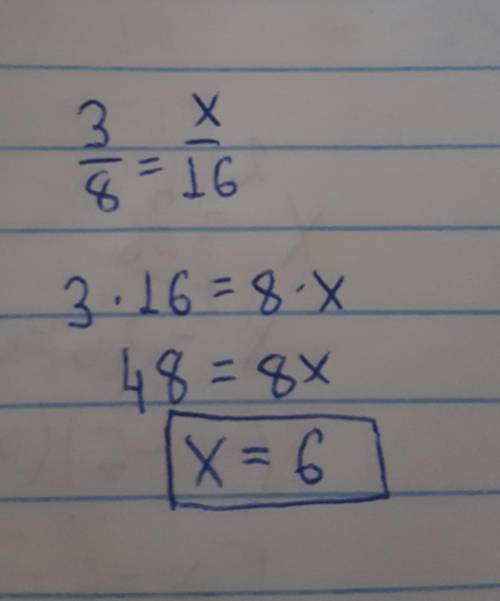 3/8 = x/16
3 · 16 = 8 · x
48 = 8x
x = 6